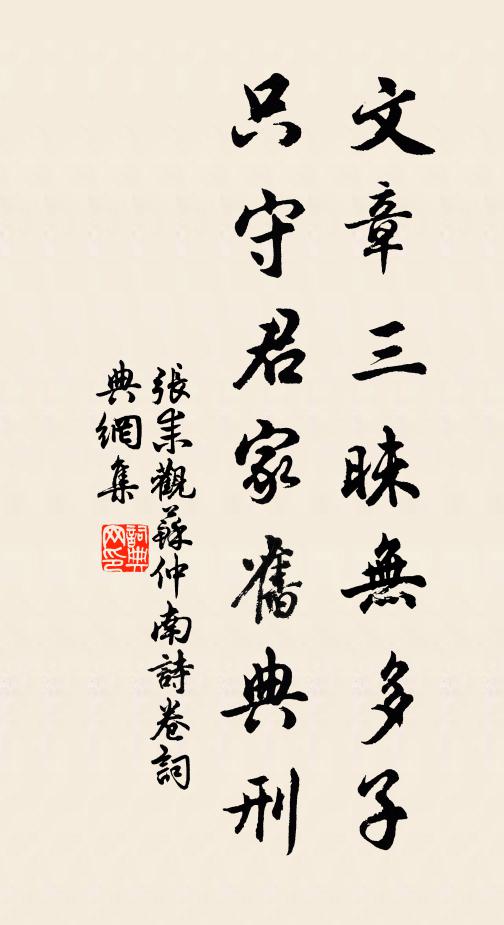 文章三昧無多子
只守君家舊典刑
張耒觀蘇仲南詩卷詞
典網集
詞典网印